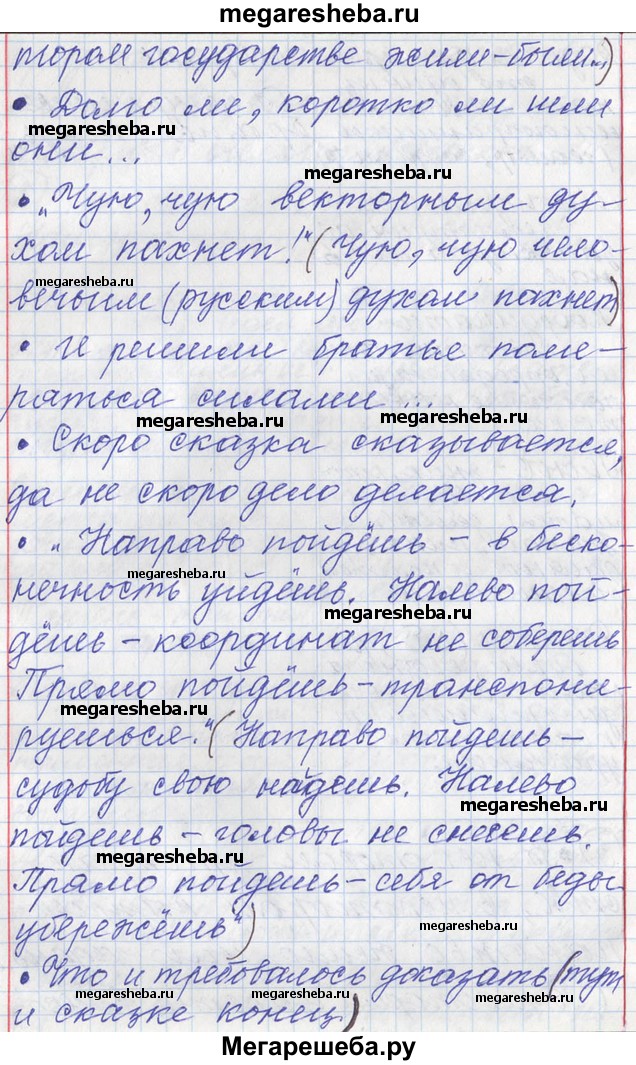 megaresheba.ru
тором государстве жили-были...)
• Долго ли, коротко ли шли
megaresheba.ru
megaresheba.ru
они...
• „Чую, чую векторным ду-
megaresheba.ru
хом пахнет!“ (Чую, чую чело-
megaresheba.ru
вечьим (русским) духом пахнет)
• И решили братья поме-
ряться силами...
megaresheba.ru
megaresheba.ru
• Скоро сказка сказывается,
да не скоро дело делается.
• „Направо пойдёшь – в беско-
megaresheba.ru
нечность уйдёшь. Налево пой-
megaresheba.ru
дёшь – координат не соберешь
Прямо пойдёшь – транспони-
megaresheba.ru
руешься.“ (Направо пойдешь –
судьбу свою найдешь. Налево
megaresheba.ru
пойдешь – головы не снесешь.
megaresheba.ru
Прямо пойдешь – себя от беды
убережёшь“)
megaresheba.ru
• Что и требовалось доказать (тут
megaresheba.ru
megaresheba.ru
megaresheba.ru
и сказке конец.)
Мегарешеба.ру